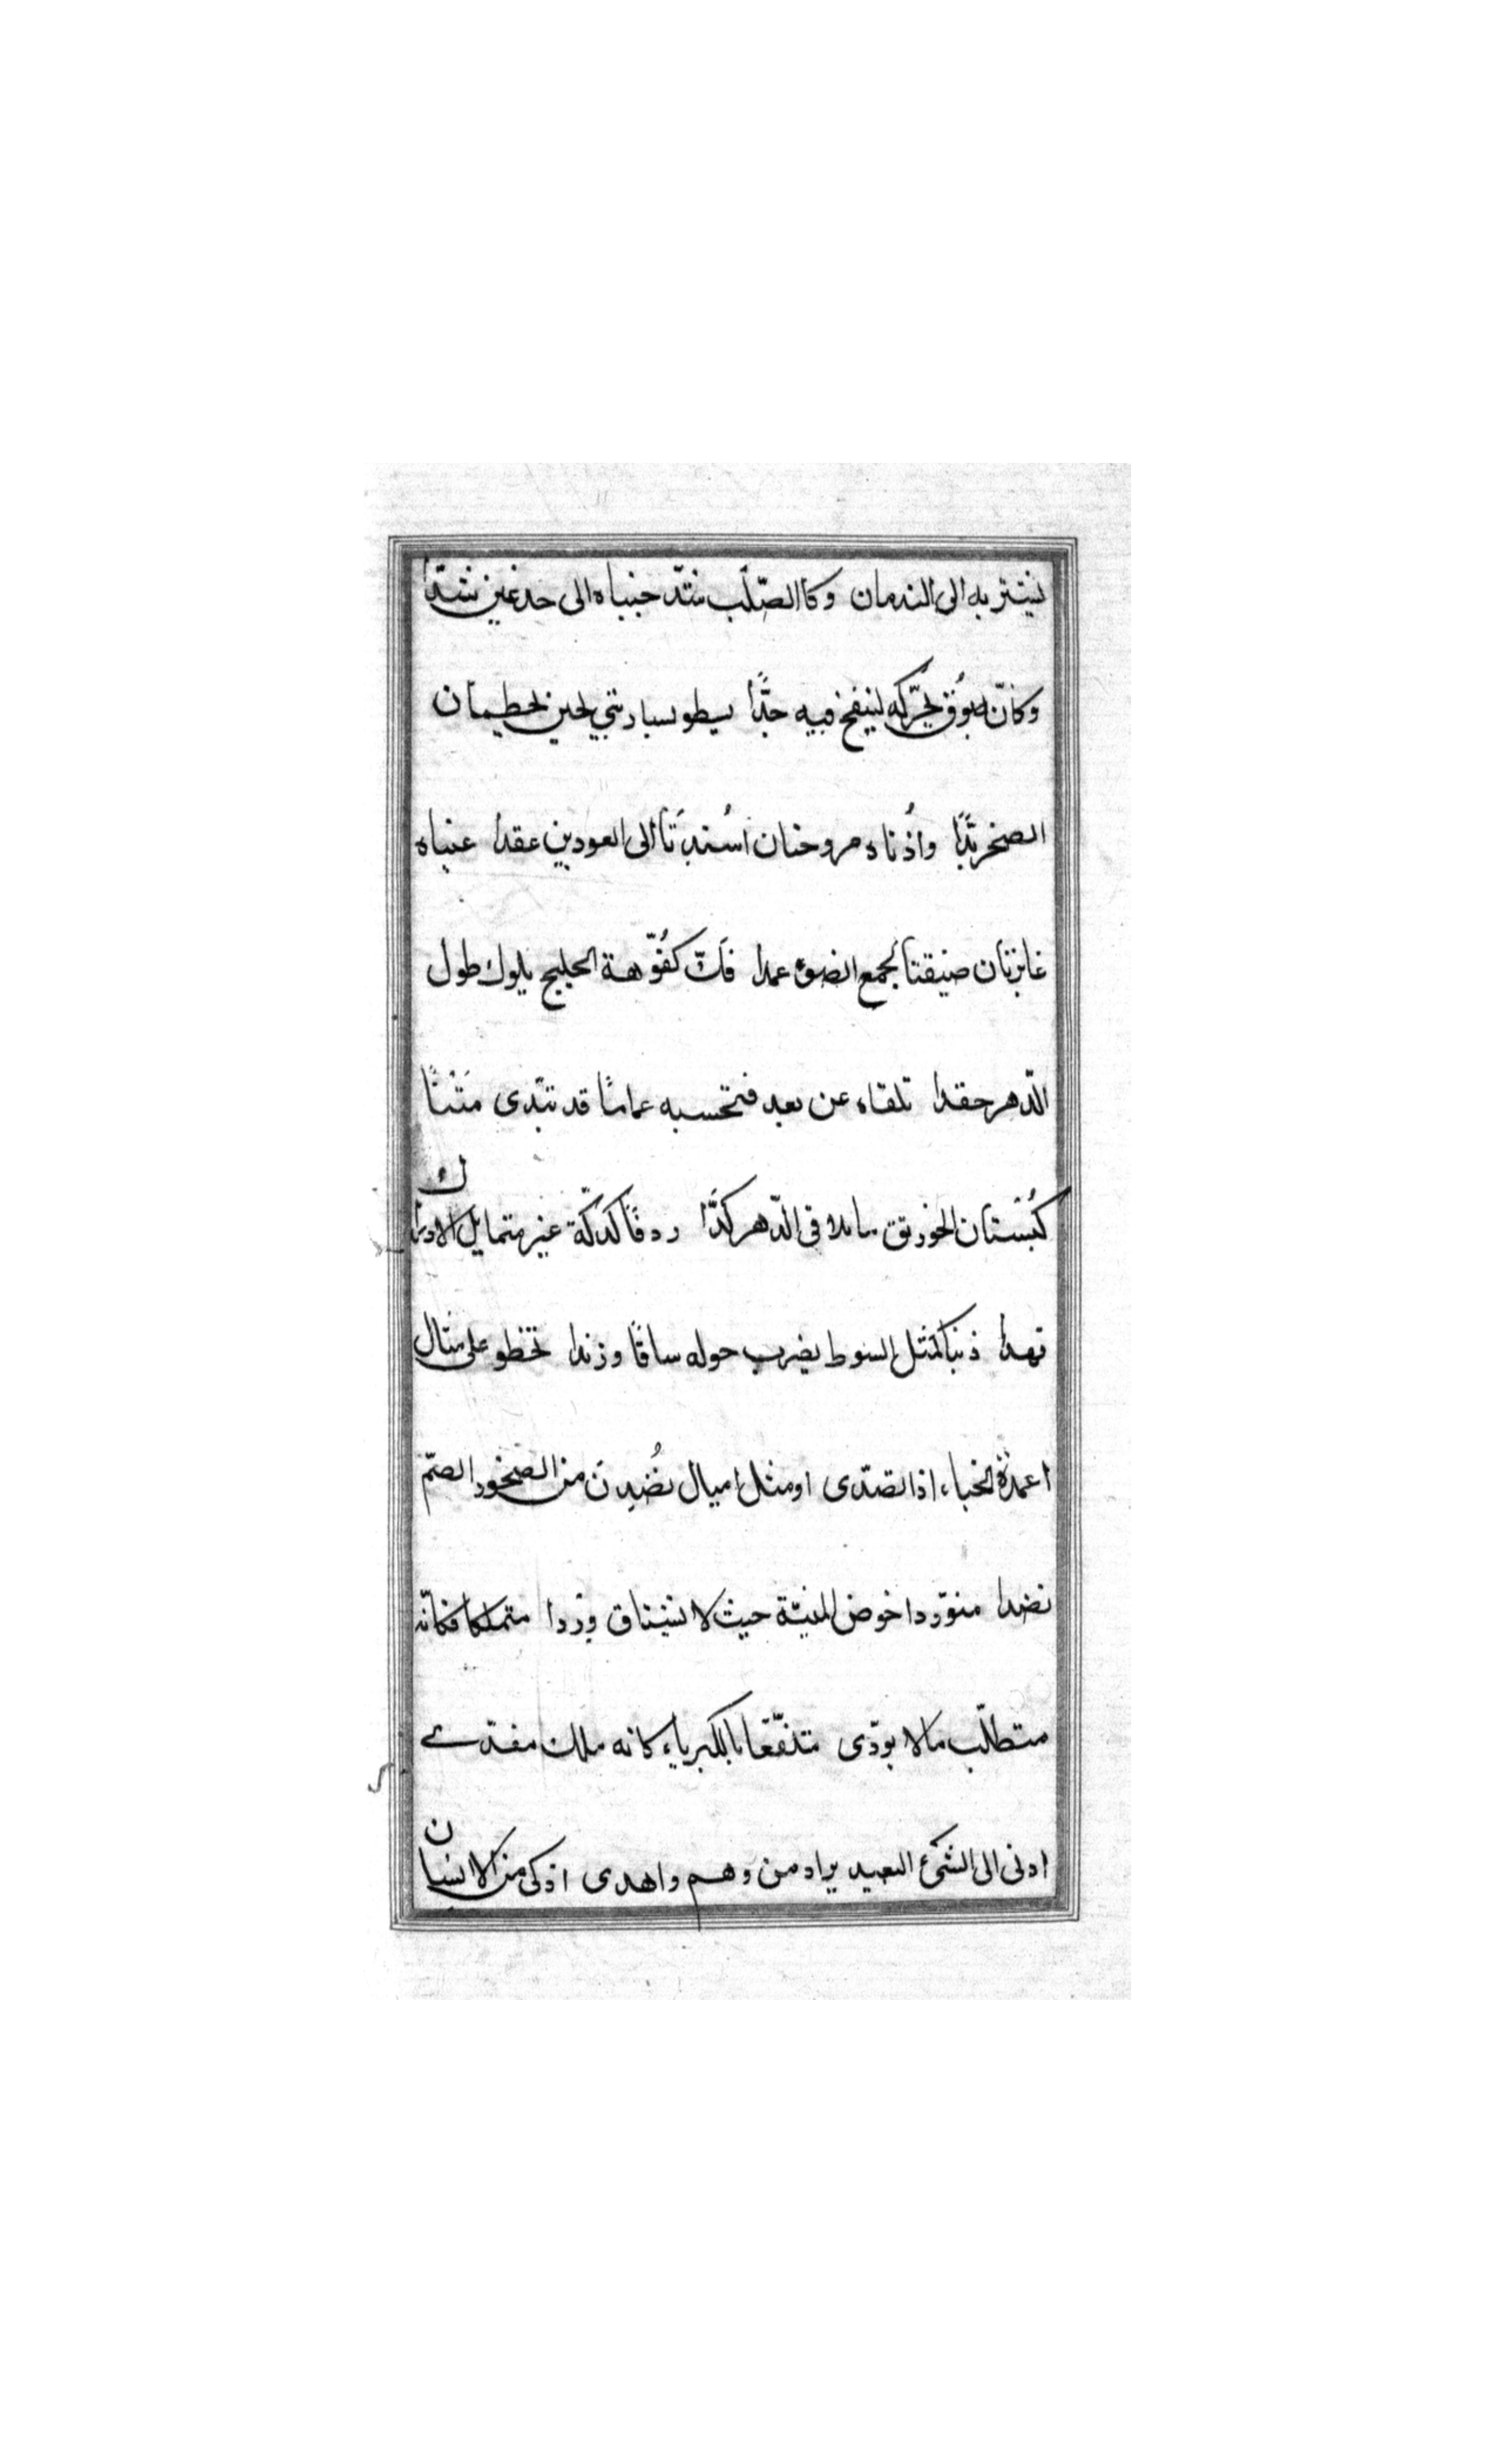 يشير به الى الندمان وكا الصّلب شدّ جنباه الى جذعين شدّا
وكانّه بُوق يُحرّكه لينفخ فيه جدًّا يسطو بساريتي لحين يحطمان
الصخر بَدّا وأُذناه مروحتان أُسندتا الى العودين عقدا عيناه
غايرتان ضيقتا لجمع الضوء عمدا فكّ كفُوّهة الخليج يلوك طول
الدّهر حقدا تلقاه عن بعد فتحسبه غمامًا قد تبدّى مَتْنًا
كبُنيان الخورنق ما يلاقي الدّهر كدًّا ردفًا كدكّة عنبر متمايل الاوراك
نهدا ذنبا كمثل السوط يضرب حوله ساقًا وزندا تخطو على مثال
اعمدة الخباء اذا تصدّى او مثل اميال نُضدن من الصخور الصمّ
نضدا متورّدا حوض المنيّة حيث لا يشتاق وِردا متملكا فكانّه
متطلّب ما لا يودّى متلفّعا بالكبرياء كانه ملك مفدّى
ادنى الى الشئ البعيد يراد من وهم واهدى اذكى من الانسان